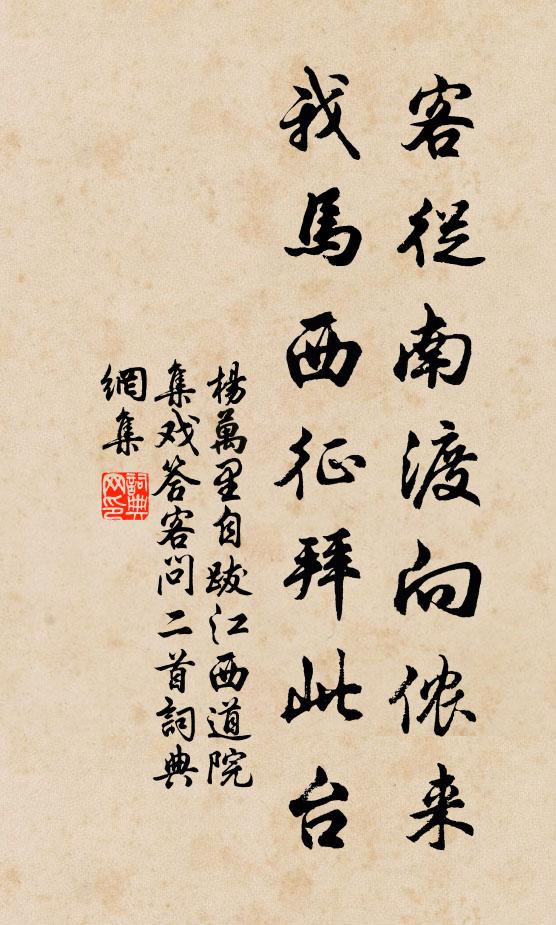 客從南渡向侬来
我馬西征拜此台
楊萬里自跋江西道院
集戏答客问二首詞典
網集
詞典网印